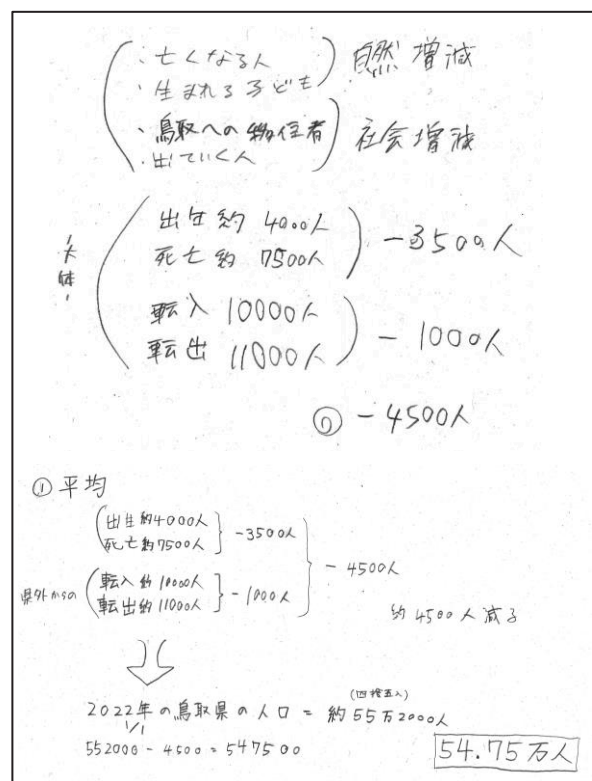 ・亡くなる人
・生まれる子ども
自然増減
・鳥取への移住者
・出ていく人
社会増減
大体
出生約4000人
死亡約7500人
-3500人
転入 10000人
転出 11000人
-1000人
-4500人
① 平均
出生約4000人
死亡約7500人
-3500人
県外からの
転入約10000人
転出約11000人
-1000人
-4500人
約4500人減る
2022年の鳥取県の人口=約55万2000人
(四捨五入)
1/1
552000-4500=547500
54.75万人